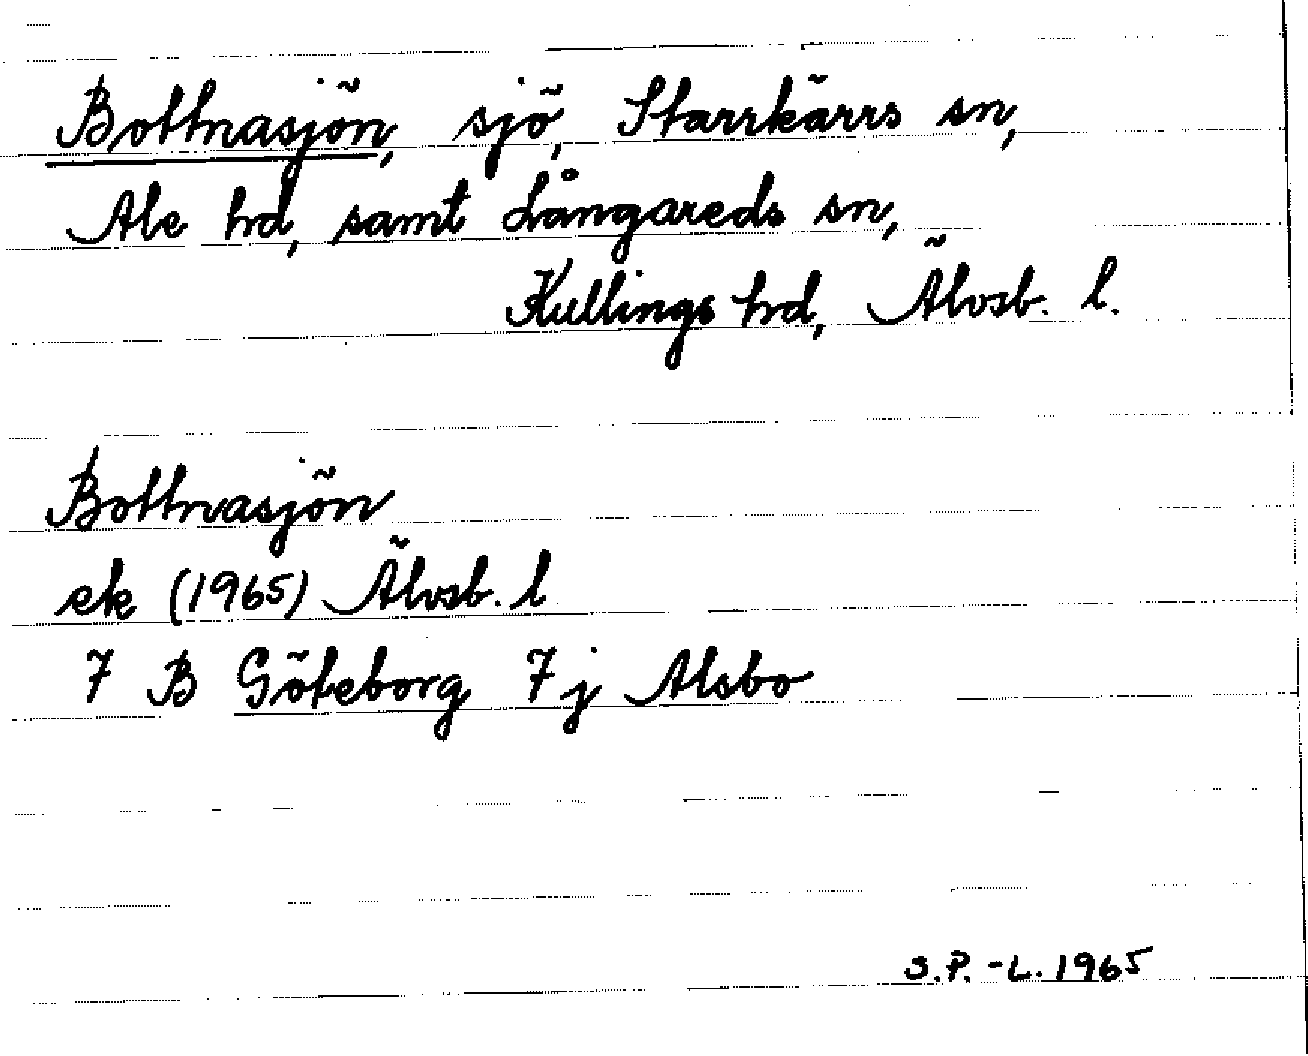 Bottnasjön, sjö, Starrkärrs sn,
Ale hd, samt Långareds sn,
Kullings hd, Älvsb. l.
Bottnasjön
ek (1965) Älvsb. l
7 B Göteborg 7 j Alsbo
S.P.-L. 1965